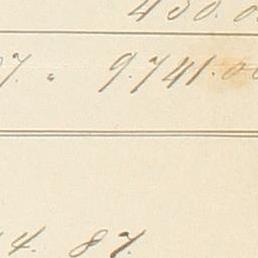 450.0
7. " 9.741.00
4. 87.